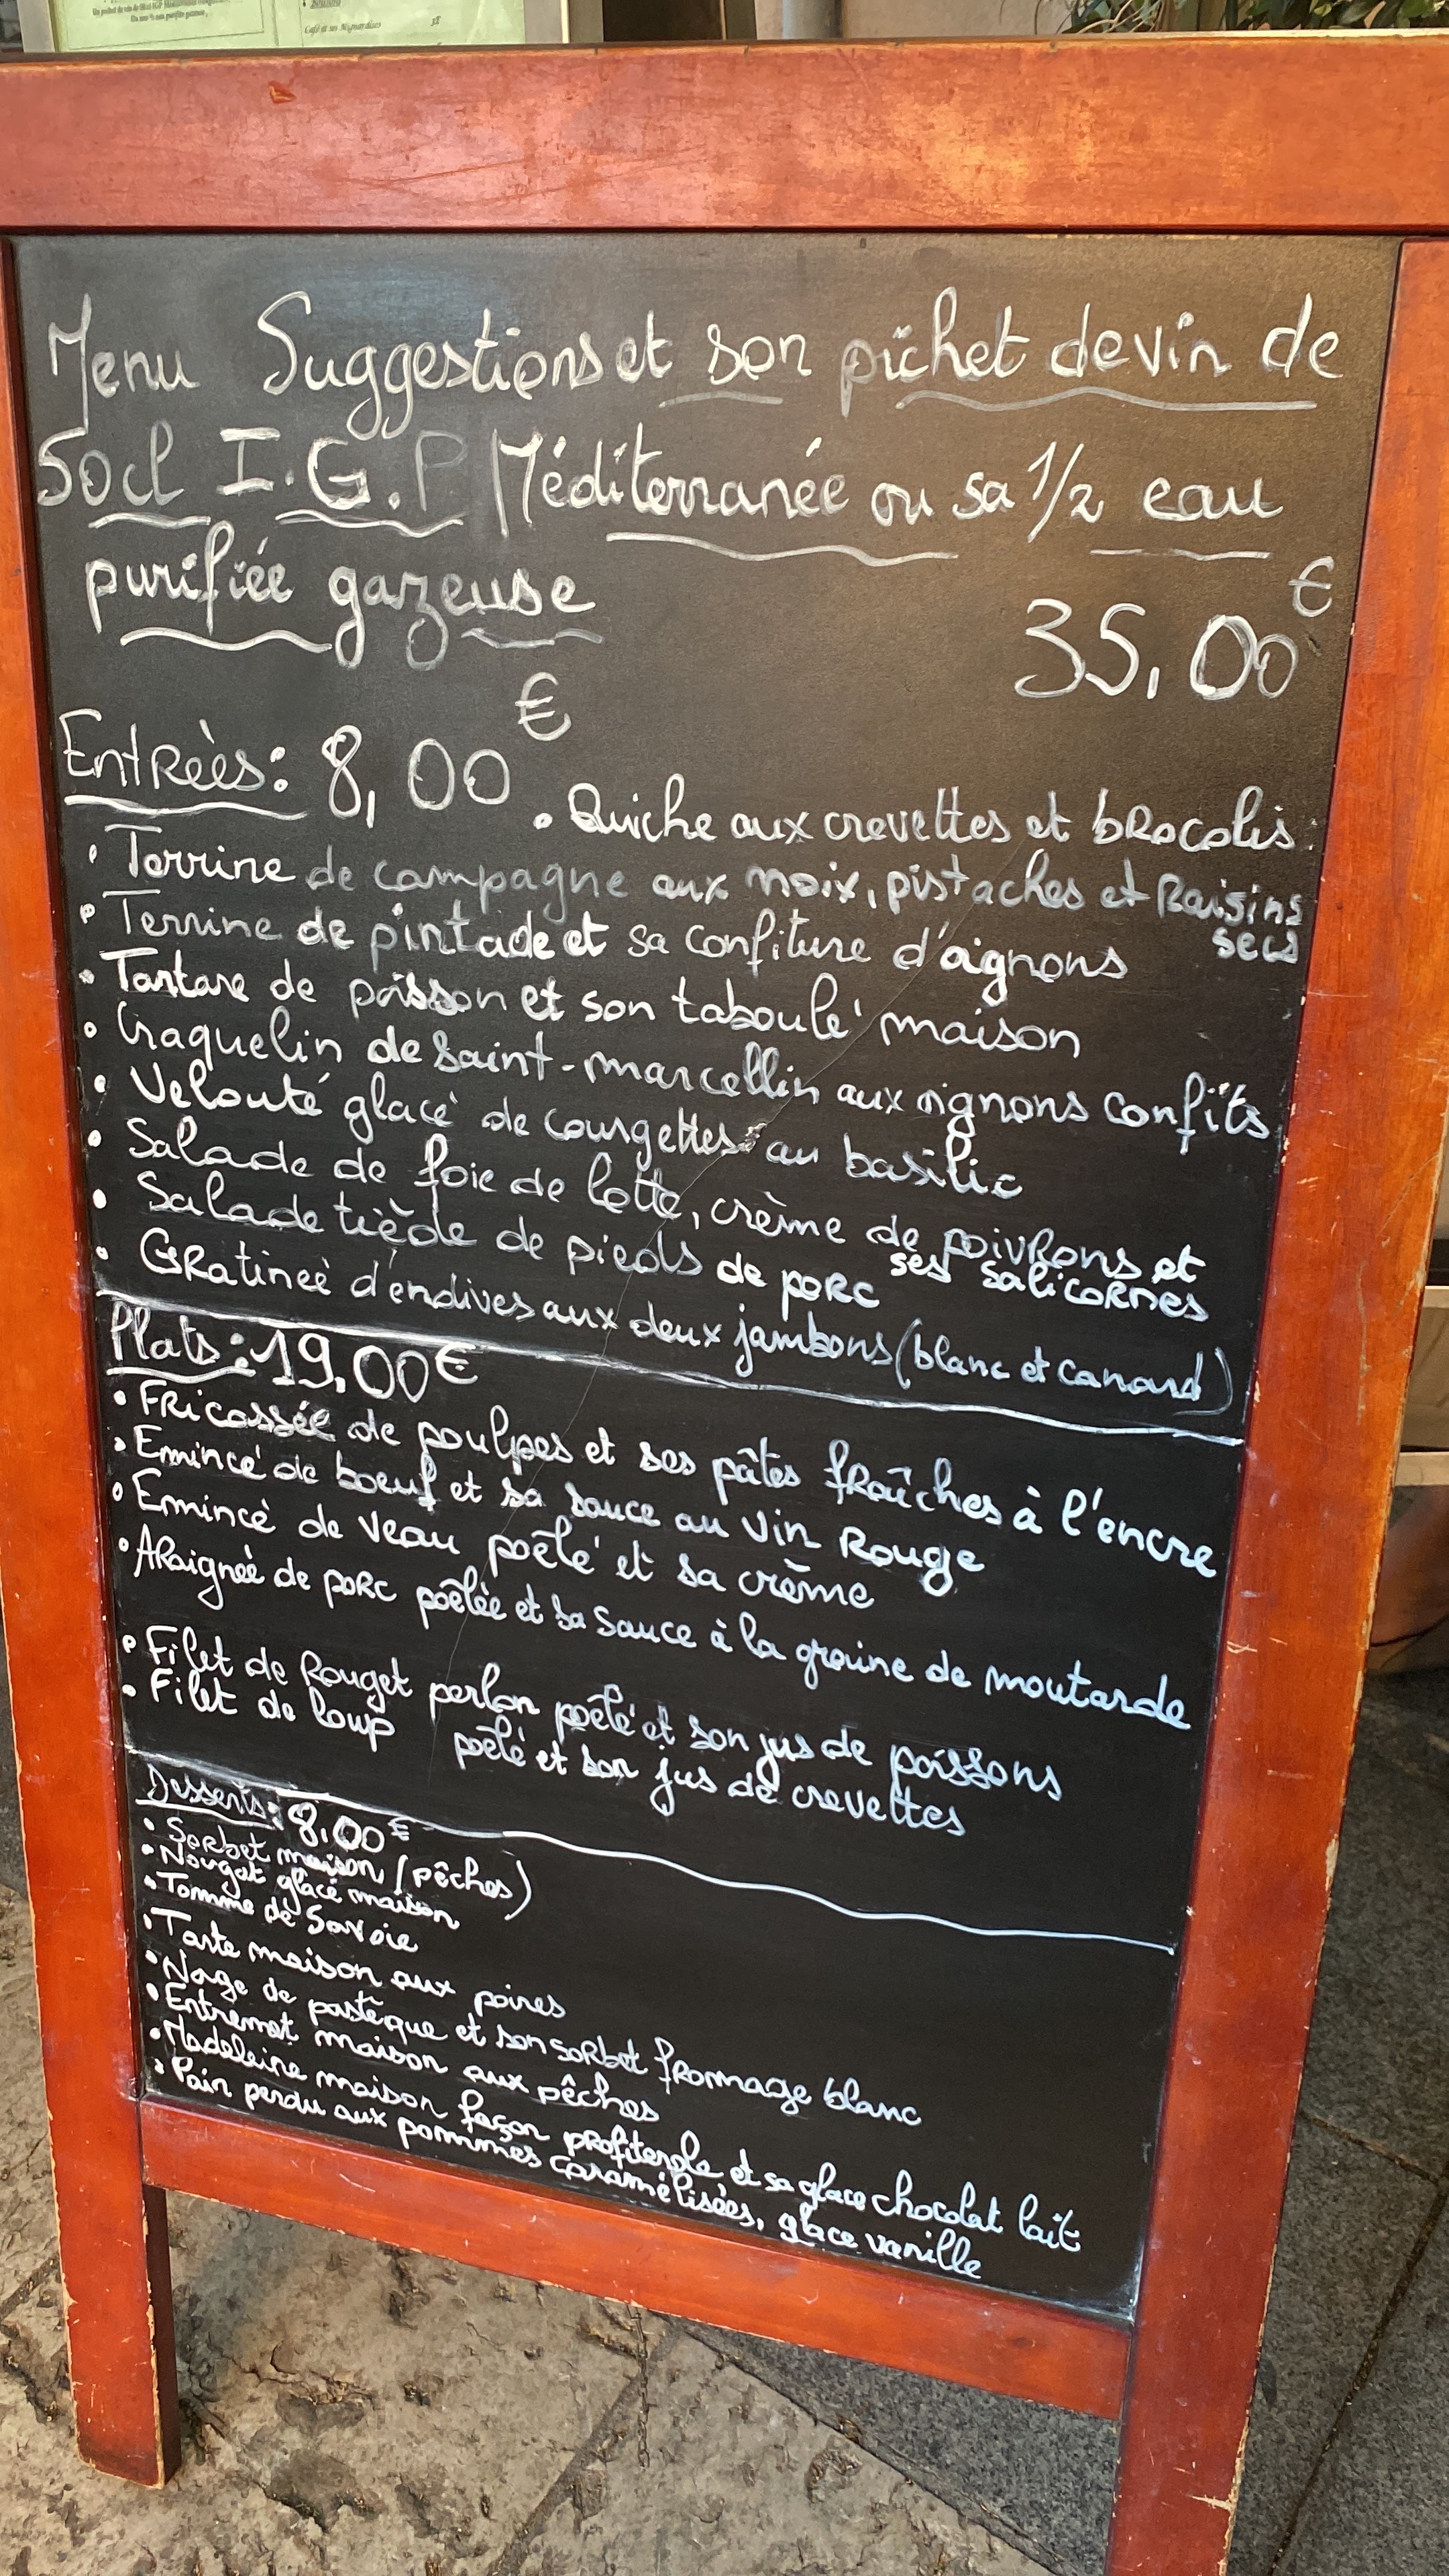 Café et ses Mignardises
Menu Suggestions et son pichet de vin de
Socl I.G.P Méditerranée ou sa 1/2 eau
purifiée gazeuse
35,00€
Entrèès: 8,00€
• Quiche aux crevettes et brocolis
• Terrine de campagne aux noix, pistaches et Raisins
secs
• Terrine de pintade et sa confiture d'oignons
• Tartare de poisson et son taboulé maison
• Craquelin de Saint-marcellin aux oignons confits
• Velouté glacé de courgettes au basilic
• Salade de foie de lotte, crème de poivrons et
ses salicornes
• Salade tiède de pieds de porc
• Gratineè d'endives aux deux jambons (blanc et canard)
Plats: 19,00€
• Fricassée de poulpes et ses pâtes fraîches à l'encre
• Emincé de boeuf et sa sauce au vin Rouge
• Emincè de veau poêlé et sa crème
• Araignée de porc poêlèe et sa sauce à la graine de moutarde
• Filet de Rouget perlon poêlé et son jus de poissons
• Filet de loup poêlé et son jus de crevettes
Desserts: 8,00€
• Sorbet maison (pêches)
• Nougat glacé maison
• Tomme de Savoie
• Tarte maison aux poires
• Nage de pastèque et son sorbet fromage blanc
• Entremet maison aux pêches
• Madeleine maison façon profiterole et sa glace chocolat lait
• Pain perdu aux pommes caramélisées, glace vanille